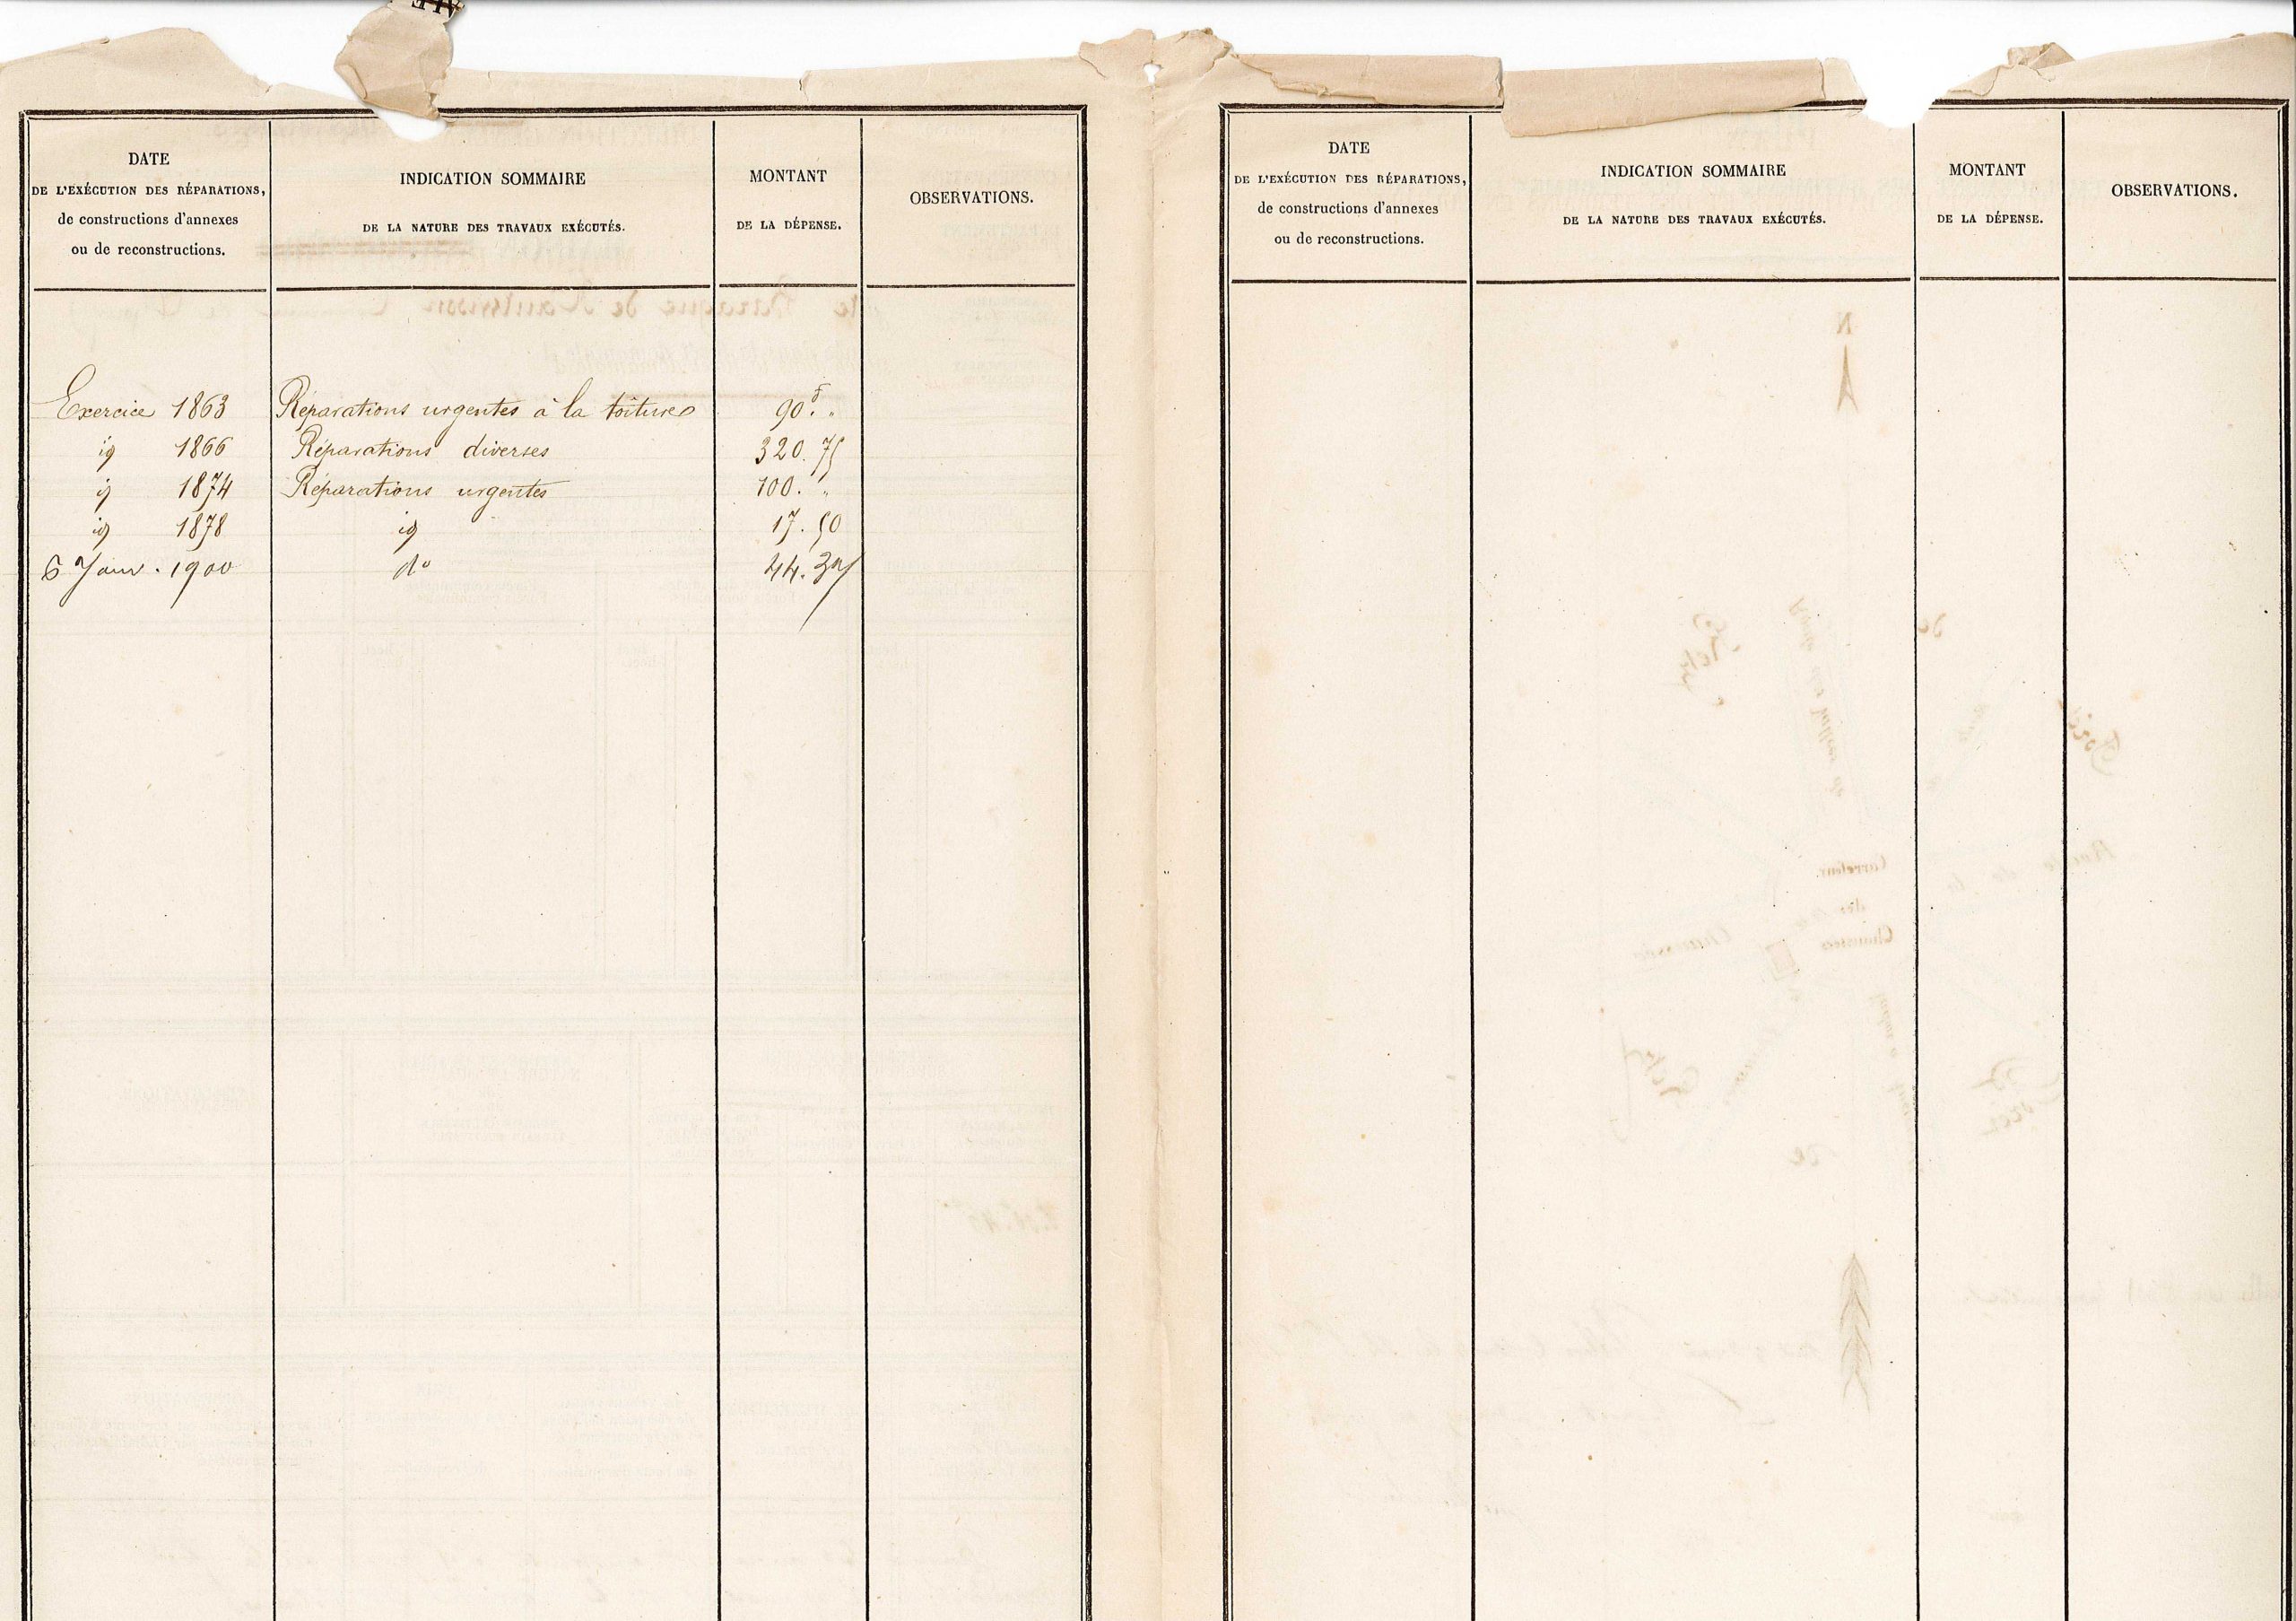 DATE
DE L'EXÉCUTION DES RÉPARATIONS,
de constructions d'annexes
ou de reconstructions.
INDICATION SOMMAIRE
DE LA NATURE DES TRAVAUX EXÉCUTÉS.
MONTANT
DE LA DÉPENSE.
OBSERVATIONS.
Exercice 1863 Réparations urgentes à la toiture 90.f "
id 1866 Réparations diverses 320.75
id 1874 Réparations urgentes 100. "
id 1878 id 17.50
6 Janv. 1900 do 44.
DATE
DE L'EXÉCUTION DES RÉPARATIONS,
de constructions d'annexes
ou de reconstructions.
INDICATION SOMMAIRE
DE LA NATURE DES TRAVAUX EXÉCUTÉS.
MONTANT
DE LA DÉPENSE.
OBSERVATIONS.